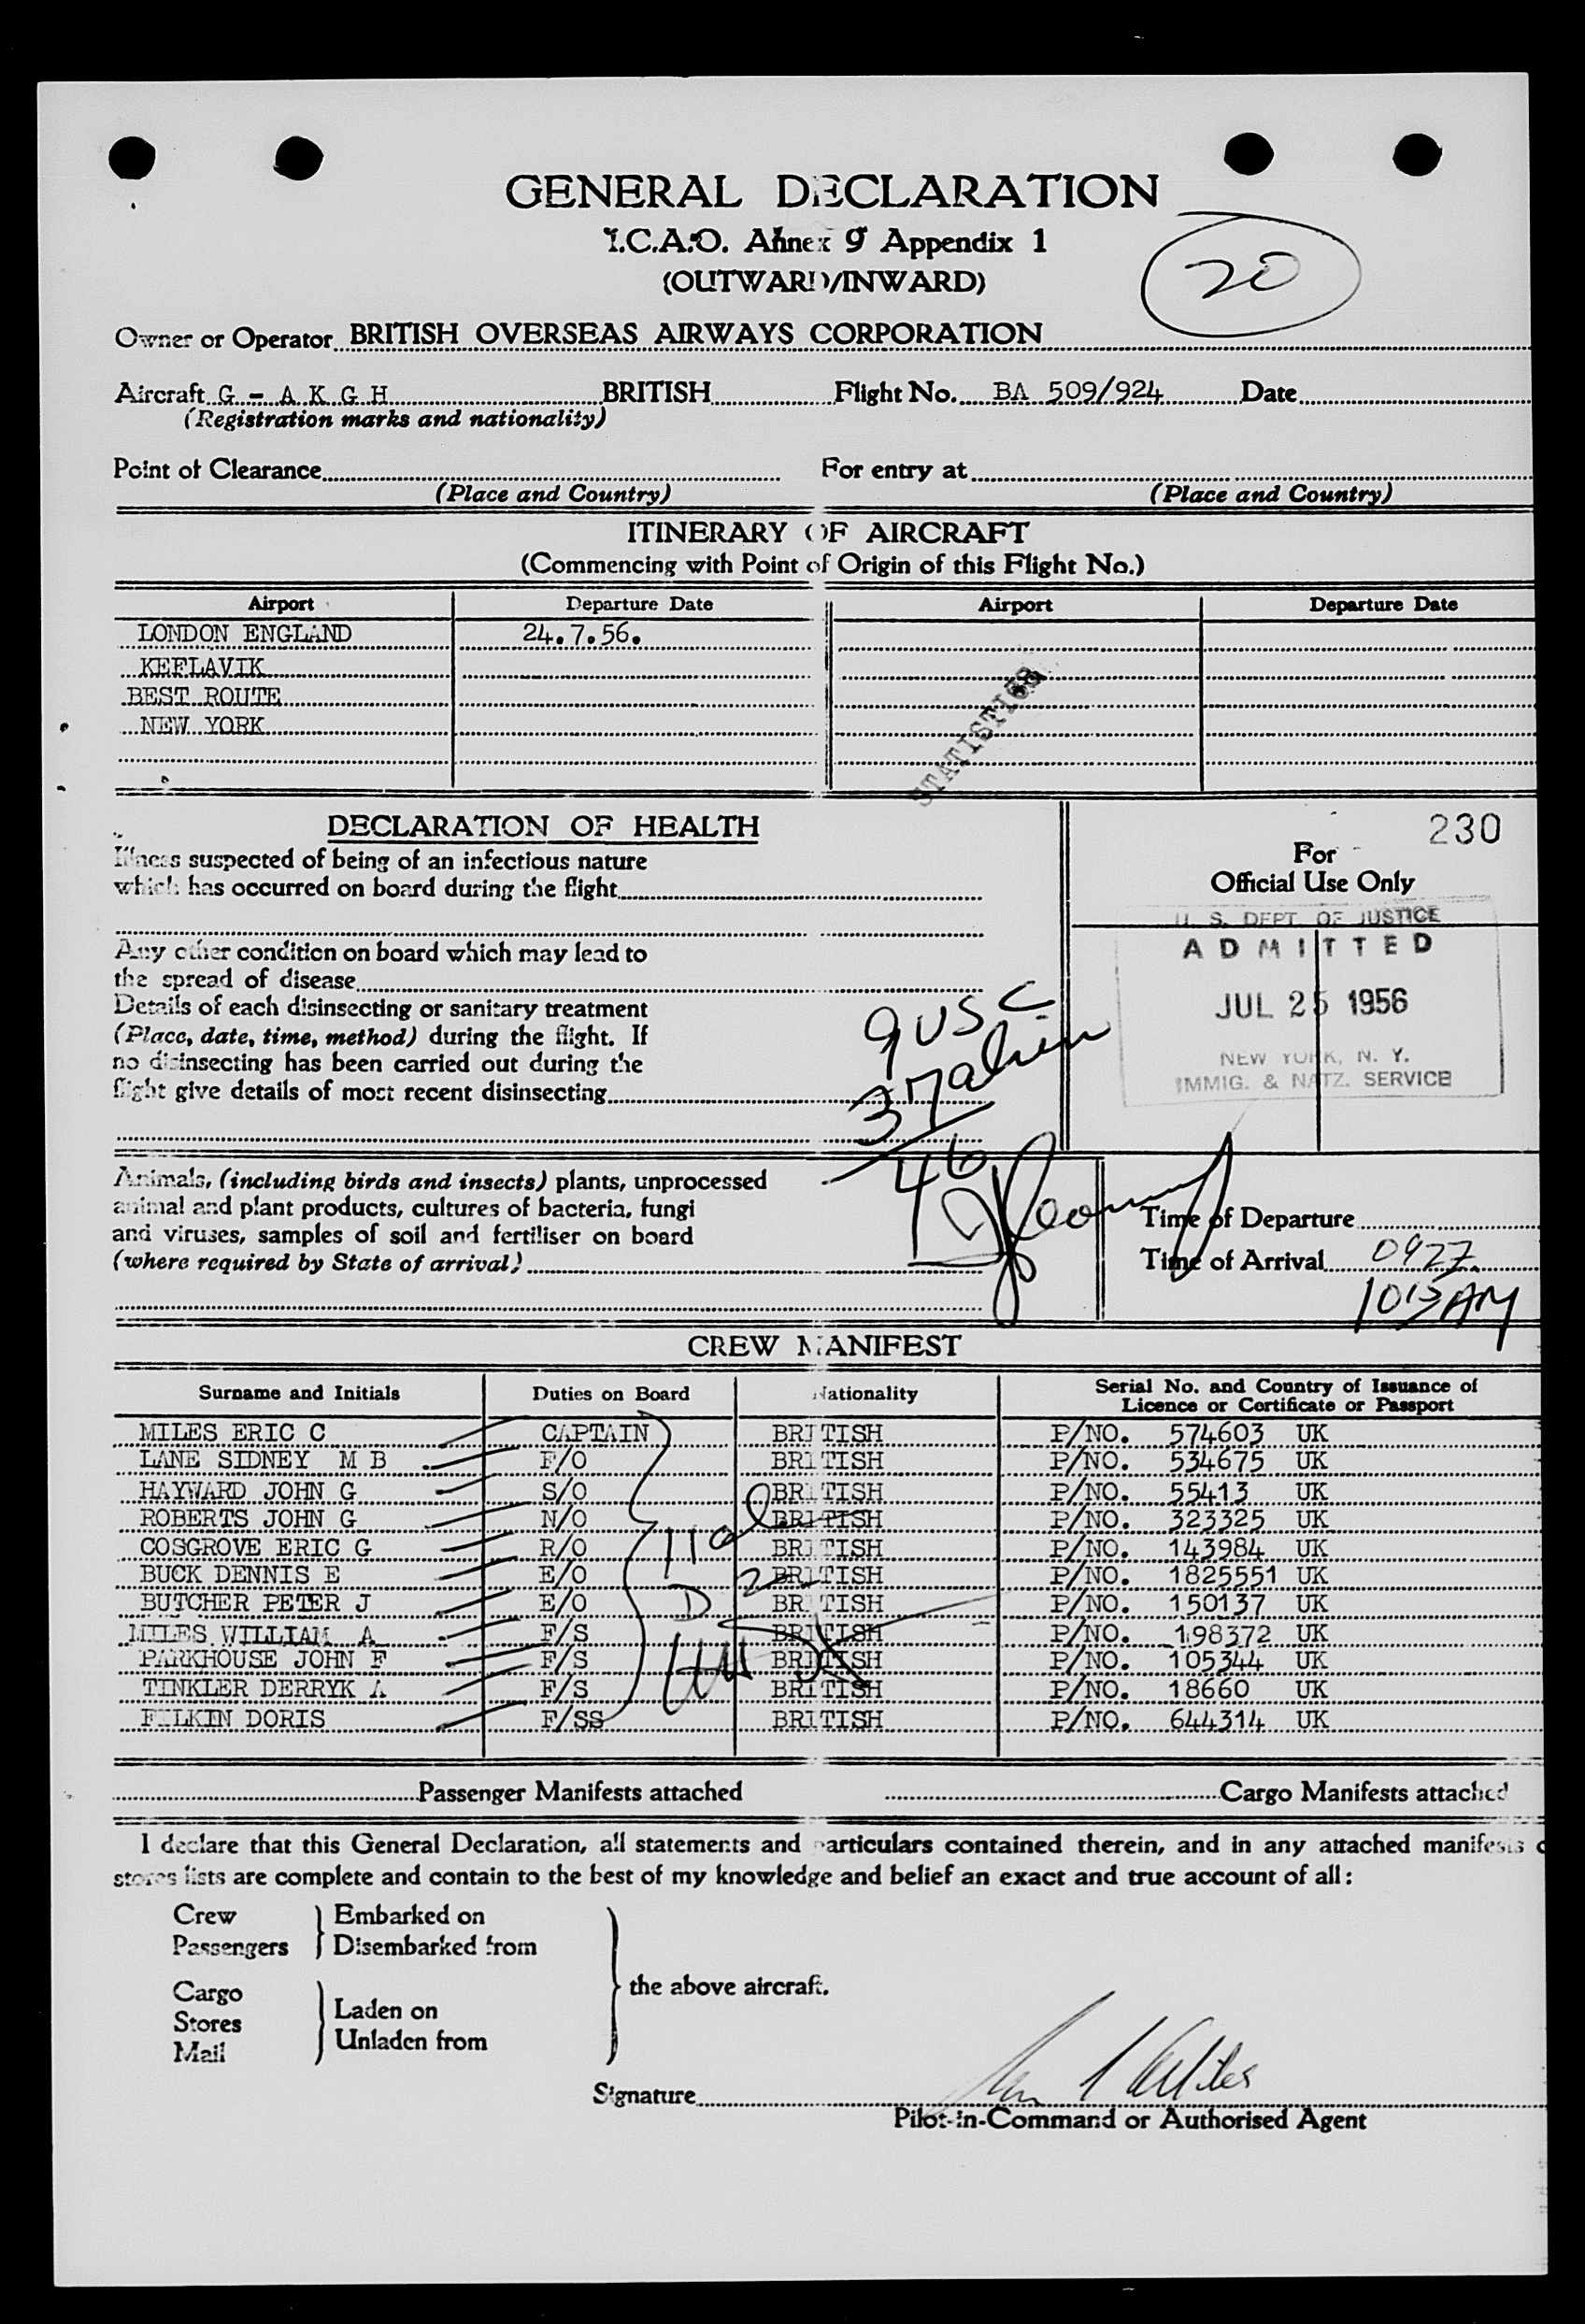 GENERAL DECLARATION
I.C.A.O. Annex 9 Appendix 1
(OUTWARD/INWARD)
20
Owner or Operator BRITISH OVERSEAS AIRWAYS CORPORATION
Aircraft G - A K G H BRITISH Flight No. BA 509/924 Date
(Registration marks and nationality)
Point of Clearance For entry at
(Place and Country) (Place and Country)
ITINERARY OF AIRCRAFT
(Commencing with Point of Origin of this Flight No.)
Airport Departure Date Airport Departure Date
LONDON ENGLAND 24.7.56.
KEFLAVIK
BEST ROUTE
NEW YORK
STATISTICS
DECLARATION OF HEALTH
Illness suspected of being of an infectious nature
which has occurred on board during the flight
Any other condition on board which may lead to
the spread of disease
Details of each disinsecting or sanitary treatment
(Place, date, time, method) during the flight. If
no disinsecting has been carried out during the
flight give details of most recent disinsecting
230
For
Official Use Only
U. S. DEPT OF JUSTICE
ADMITTED
JUL 25 1956
NEW YORK, N. Y.
IMMIG. & NATZ. SERVICE
9 USC
37 alien
46
Animals, (including birds and insects) plants, unprocessed
animal and plant products, cultures of bacteria, fungi
and viruses, samples of soil and fertiliser on board
(where required by State of arrival)
Time of Departure
Time of Arrival 0927
1015 AM
CREW MANIFEST
Surname and Initials Duties on Board Nationality Serial No. and Country of Issuance of Licence or Certificate or Passport
MILES ERIC C CAPTAIN BRITISH P/NO. 574603 UK
LANE SIDNEY M B F/O BRITISH P/NO. 534675 UK
HAYWARD JOHN G S/O BRITISH P/NO. 55413 UK
ROBERTS JOHN G N/O BRITISH P/NO. 323325 UK
COSGROVE ERIC G R/O BRITISH P/NO. 143984 UK
BUCK DENNIS E E/O BRITISH P/NO. 1825551 UK
BUTCHER PETER J E/O BRITISH P/NO. 150137 UK
MILES WILLIAM A F/S BRITISH P/NO. 198372 UK
PARKHOUSE JOHN F F/S BRITISH P/NO. 105344 UK
TINKLER DERRYK A F/S BRITISH P/NO. 18660 UK
FILKIN DORIS F/SS BRITISH P/NO. 644314 UK
Passenger Manifests attached Cargo Manifests attached
I declare that this General Declaration, all statements and particulars contained therein, and in any attached manifests
stores lists are complete and contain to the best of my knowledge and belief an exact and true account of all:
Crew Embarked on
Passengers Disembarked from
the above aircraft.
Cargo
Stores Laden on
Mail Unladen from
Signature
Pilot-in-Command or Authorised Agent